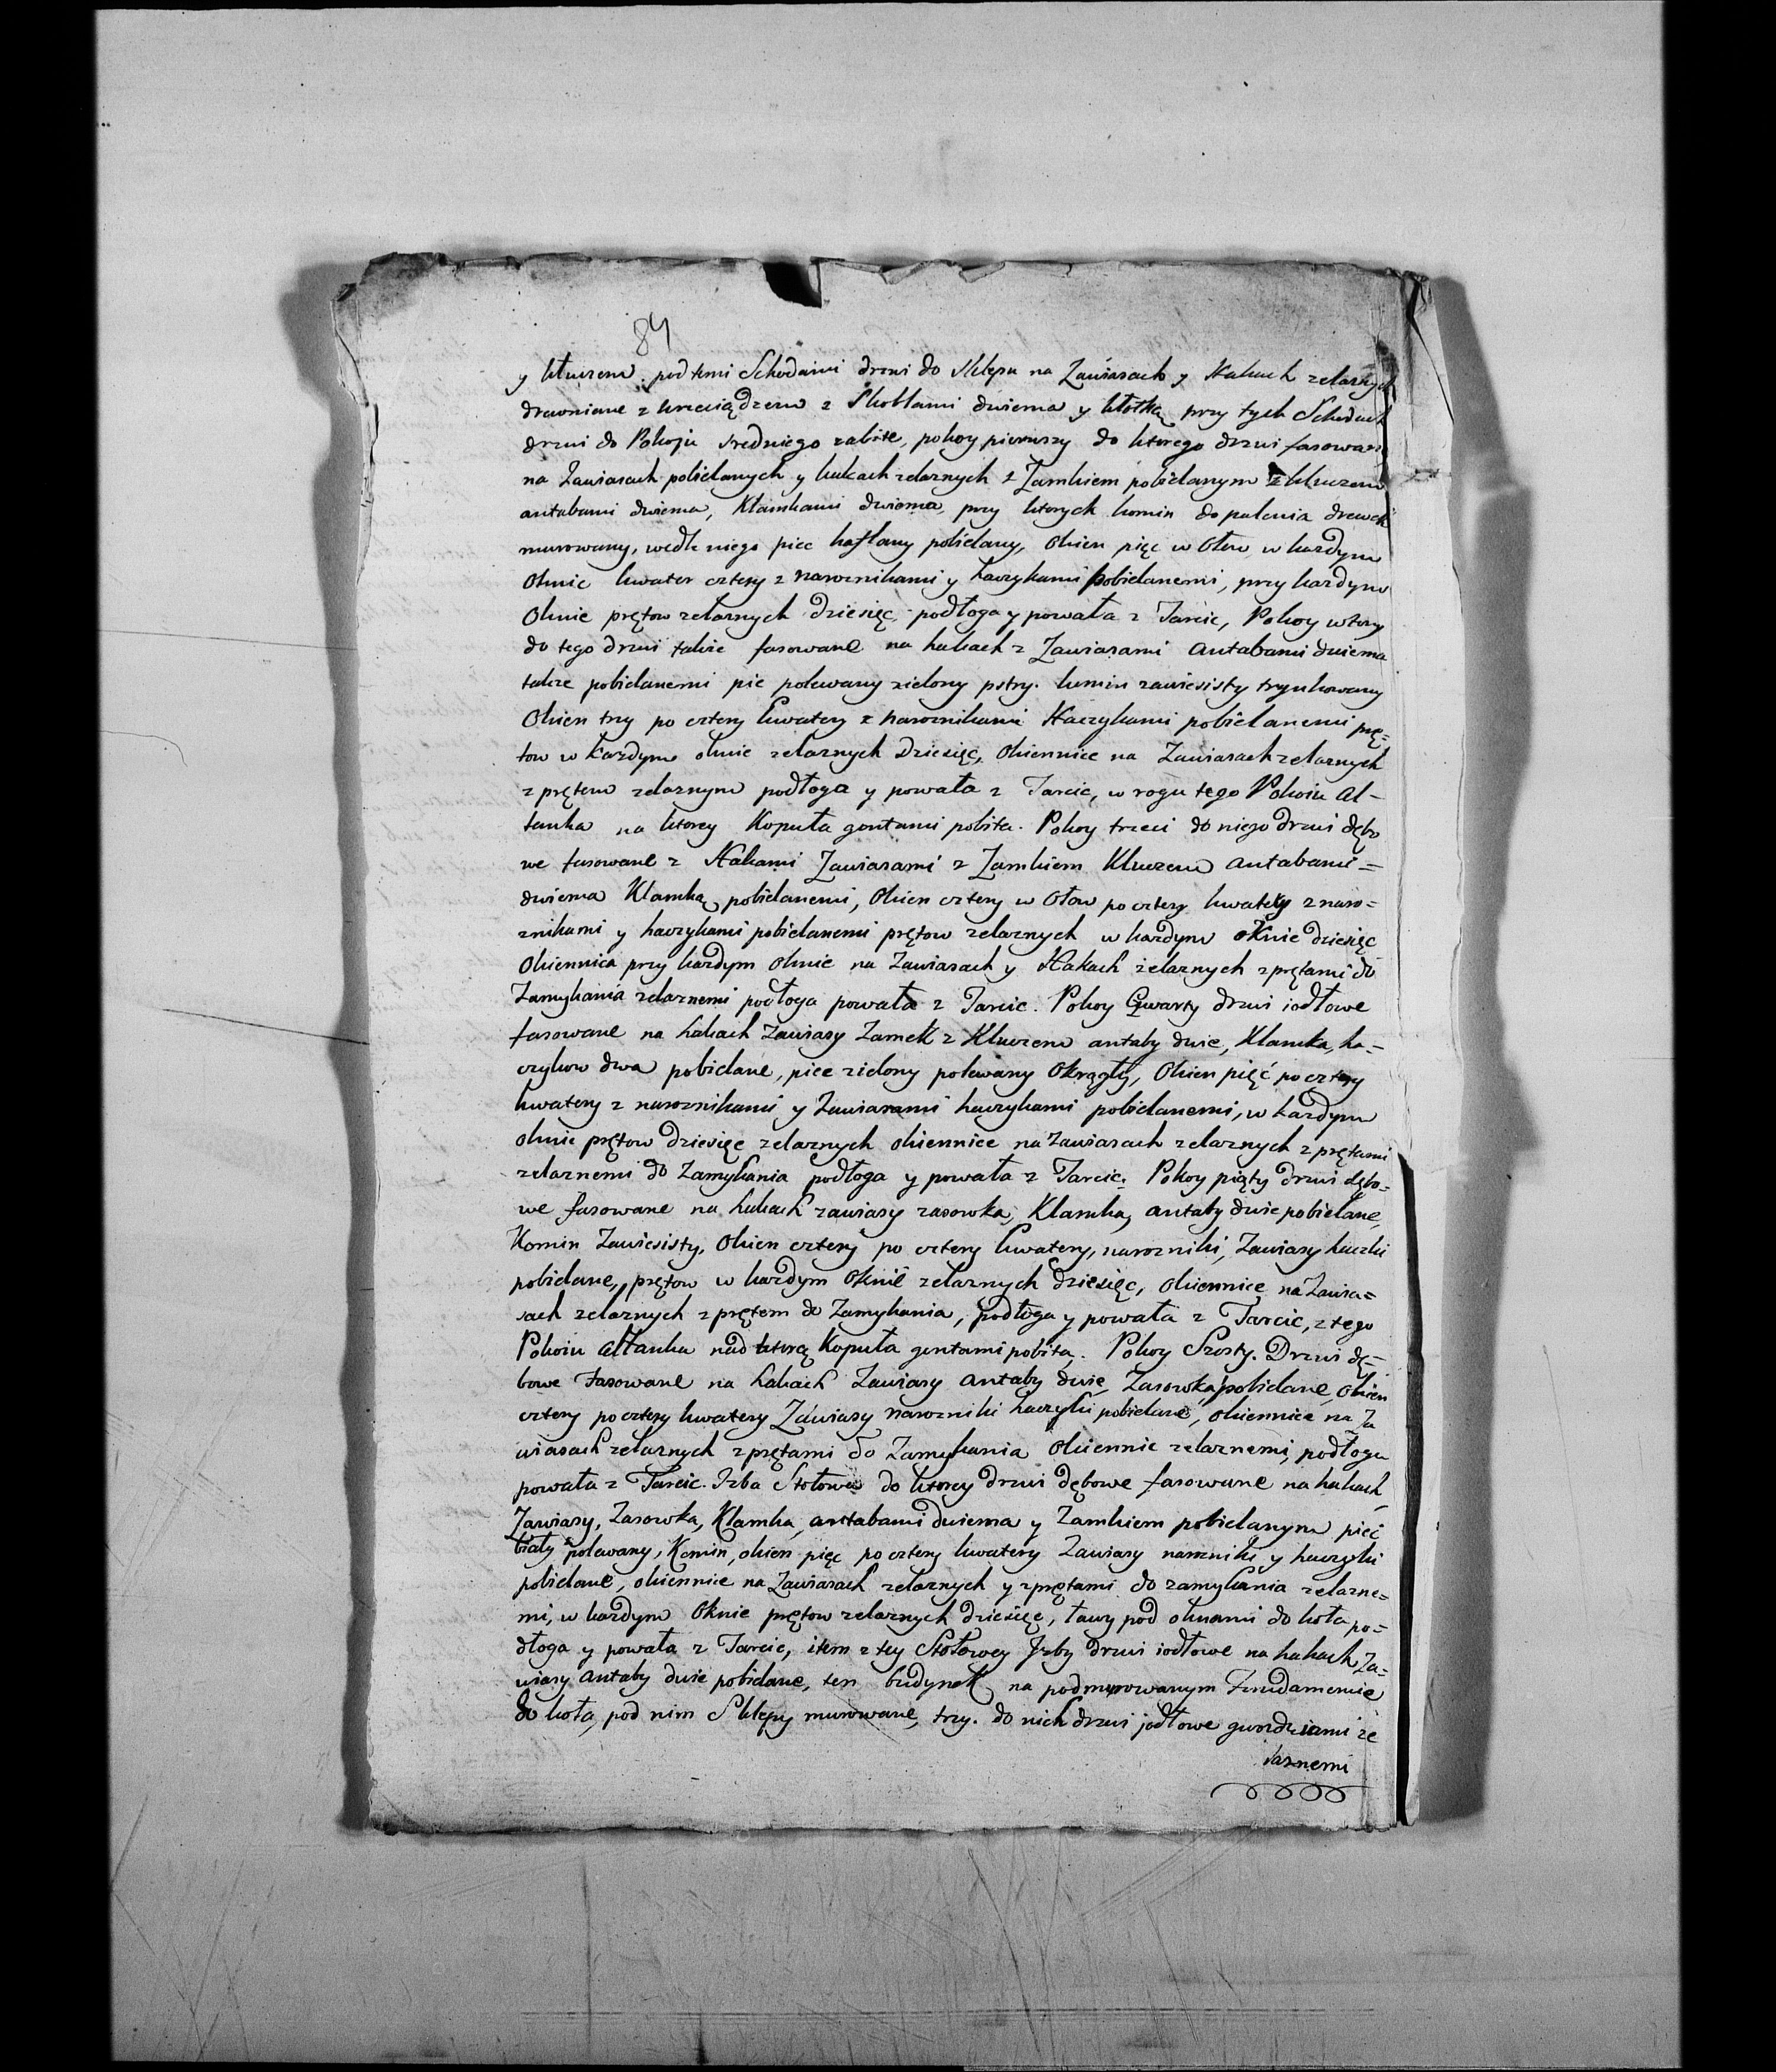 84
y kluczem. pod temi Schodami drzwi do Sklepu na Zawiasach y Hakach zelaznych
drewniane z wrzeciądzem z Skoblami dwiema y kłotką przy tych Schodach
drzwi do Pokoju sredniego zabite, pokoy pierwszy do ktorego drzwi fasowane
na Zawiasach pobielanych y hakach zelaznych z Zamkiem pobielanym z kluczem
antabami dwiema, Klamkami dwiema, przy ktorych komin do palenia drewek
murowany, wedle niego piec kaflany pobielany, Okien pięc w Ołow w kazdym
Oknie kwater cztery z naroznikami y haczykami pobielanemi, przy kazdym
Oknie prętow zelaznych dziesięc, podłoga y powała z Tarcic, Pokoy wtory
do tego drzwi takze fasowane na hakach z Zawiasami antabami dwiema
takze pobielanemi pic polewany zielony pstry. kumin zawiesisty trynkowany
Okien trzy po cztery kwatery z naroznikami Haczykami pobielanemi prę=
tow w kazdym oknie zelaznych dziesięc, Okiennice na Zawiasach zelaznych
z prętem zelaznym podłoga y powała z Tarcic, w rogu tego Pokoiu Al-
tanka na ktorey Kopuła gontami pobita. Pokoy trzeci do niego drzwi dębo
we fasowane z Hakami Zawiasami z Zamkiem Kluczem antabami =
dwiema Klamką pobielanemi, Okien cztery w Ołow po cztery kwatery z naro=
znikami y haczykami pobielanemi prętow zelaznych w kazdym oknie dziesięc
Okiennica przy kazdym oknie na Zawiasach y Hakach zelaznych z prętami do
Zamykania zelaznemi podłoga powała z Tarcic. Pokoy Cwarty drzwi iodłowe
fasowane na hakach Zawiasy Zamek z Kluczem antaby dwie, Klamka, ha=
czykow dwa pobielane, piec zielony polewany okrągły, Okien pięć po cztery
kwatery z naroznikami y Zawiasami haczykami pobielanemi, w kazdym
oknie prętow dziesięc zelaznych okiennice na Zawiasach zelaznych z prętami
zelaznemi do Zamykania podłoga y powała z Tarcic. Pokoy piąty drzwi dębo=
we fasowane na hakach zawiasy zasowka, Klamka, antaby dwie pobielane,
Komin Zawiesisty, Okien cztery po cztery kwatery, narozniki, Zawiasy haczki
pobielane, prętow w kazdym oknie zelaznych dziesięc, okiennice na Zawia=
sach zelaznych z prętem do Zamykania, podłoga y powała z Tarcic, z tego
Pokoiu altanka nad ktorą Kopuła gontami pobita,. Pokoy Szosty. Drzwi dę=
bowe fasowane na hakach Zawiasy antaby dwie, Zasowka pobielane, Okien
cztery po cztery kwatery Zawiasy narozniki haczyki pobielane, okiennice na Za
wiasach zelaznych z prętami do Zamykania Okiennic zelaznemi, podłoga
powała z Tarcic. Izba Stołowa do ktorey drzwi dębowe fasowane na hakach
Zawiasy, Zasowka, Klamka, antabami dwiema y Zamkiem pobielanym pieć
biały polewany, Komin, okien pięc po cztery kwatery Zawiasy narozniki y haczyki
pobielane, okiennice na Zawiasach zelaznych y z prętami do zamykania zelazne=
mi, w kazdym Oknie prętow zelaznych dziesięc, ławy pod oknami do koła po=
dłoga y powała z Tarcic, item z tey Stołowey Izby drzwi iodłowe na hakach Za=
wiasy antaby dwie pobielane, ten budynek na podmurowanym Fundamencie
do koła, pod nim Sklepy murowane, trzy. do nich drzwi jodłowe gwozdziami ze
laznemi